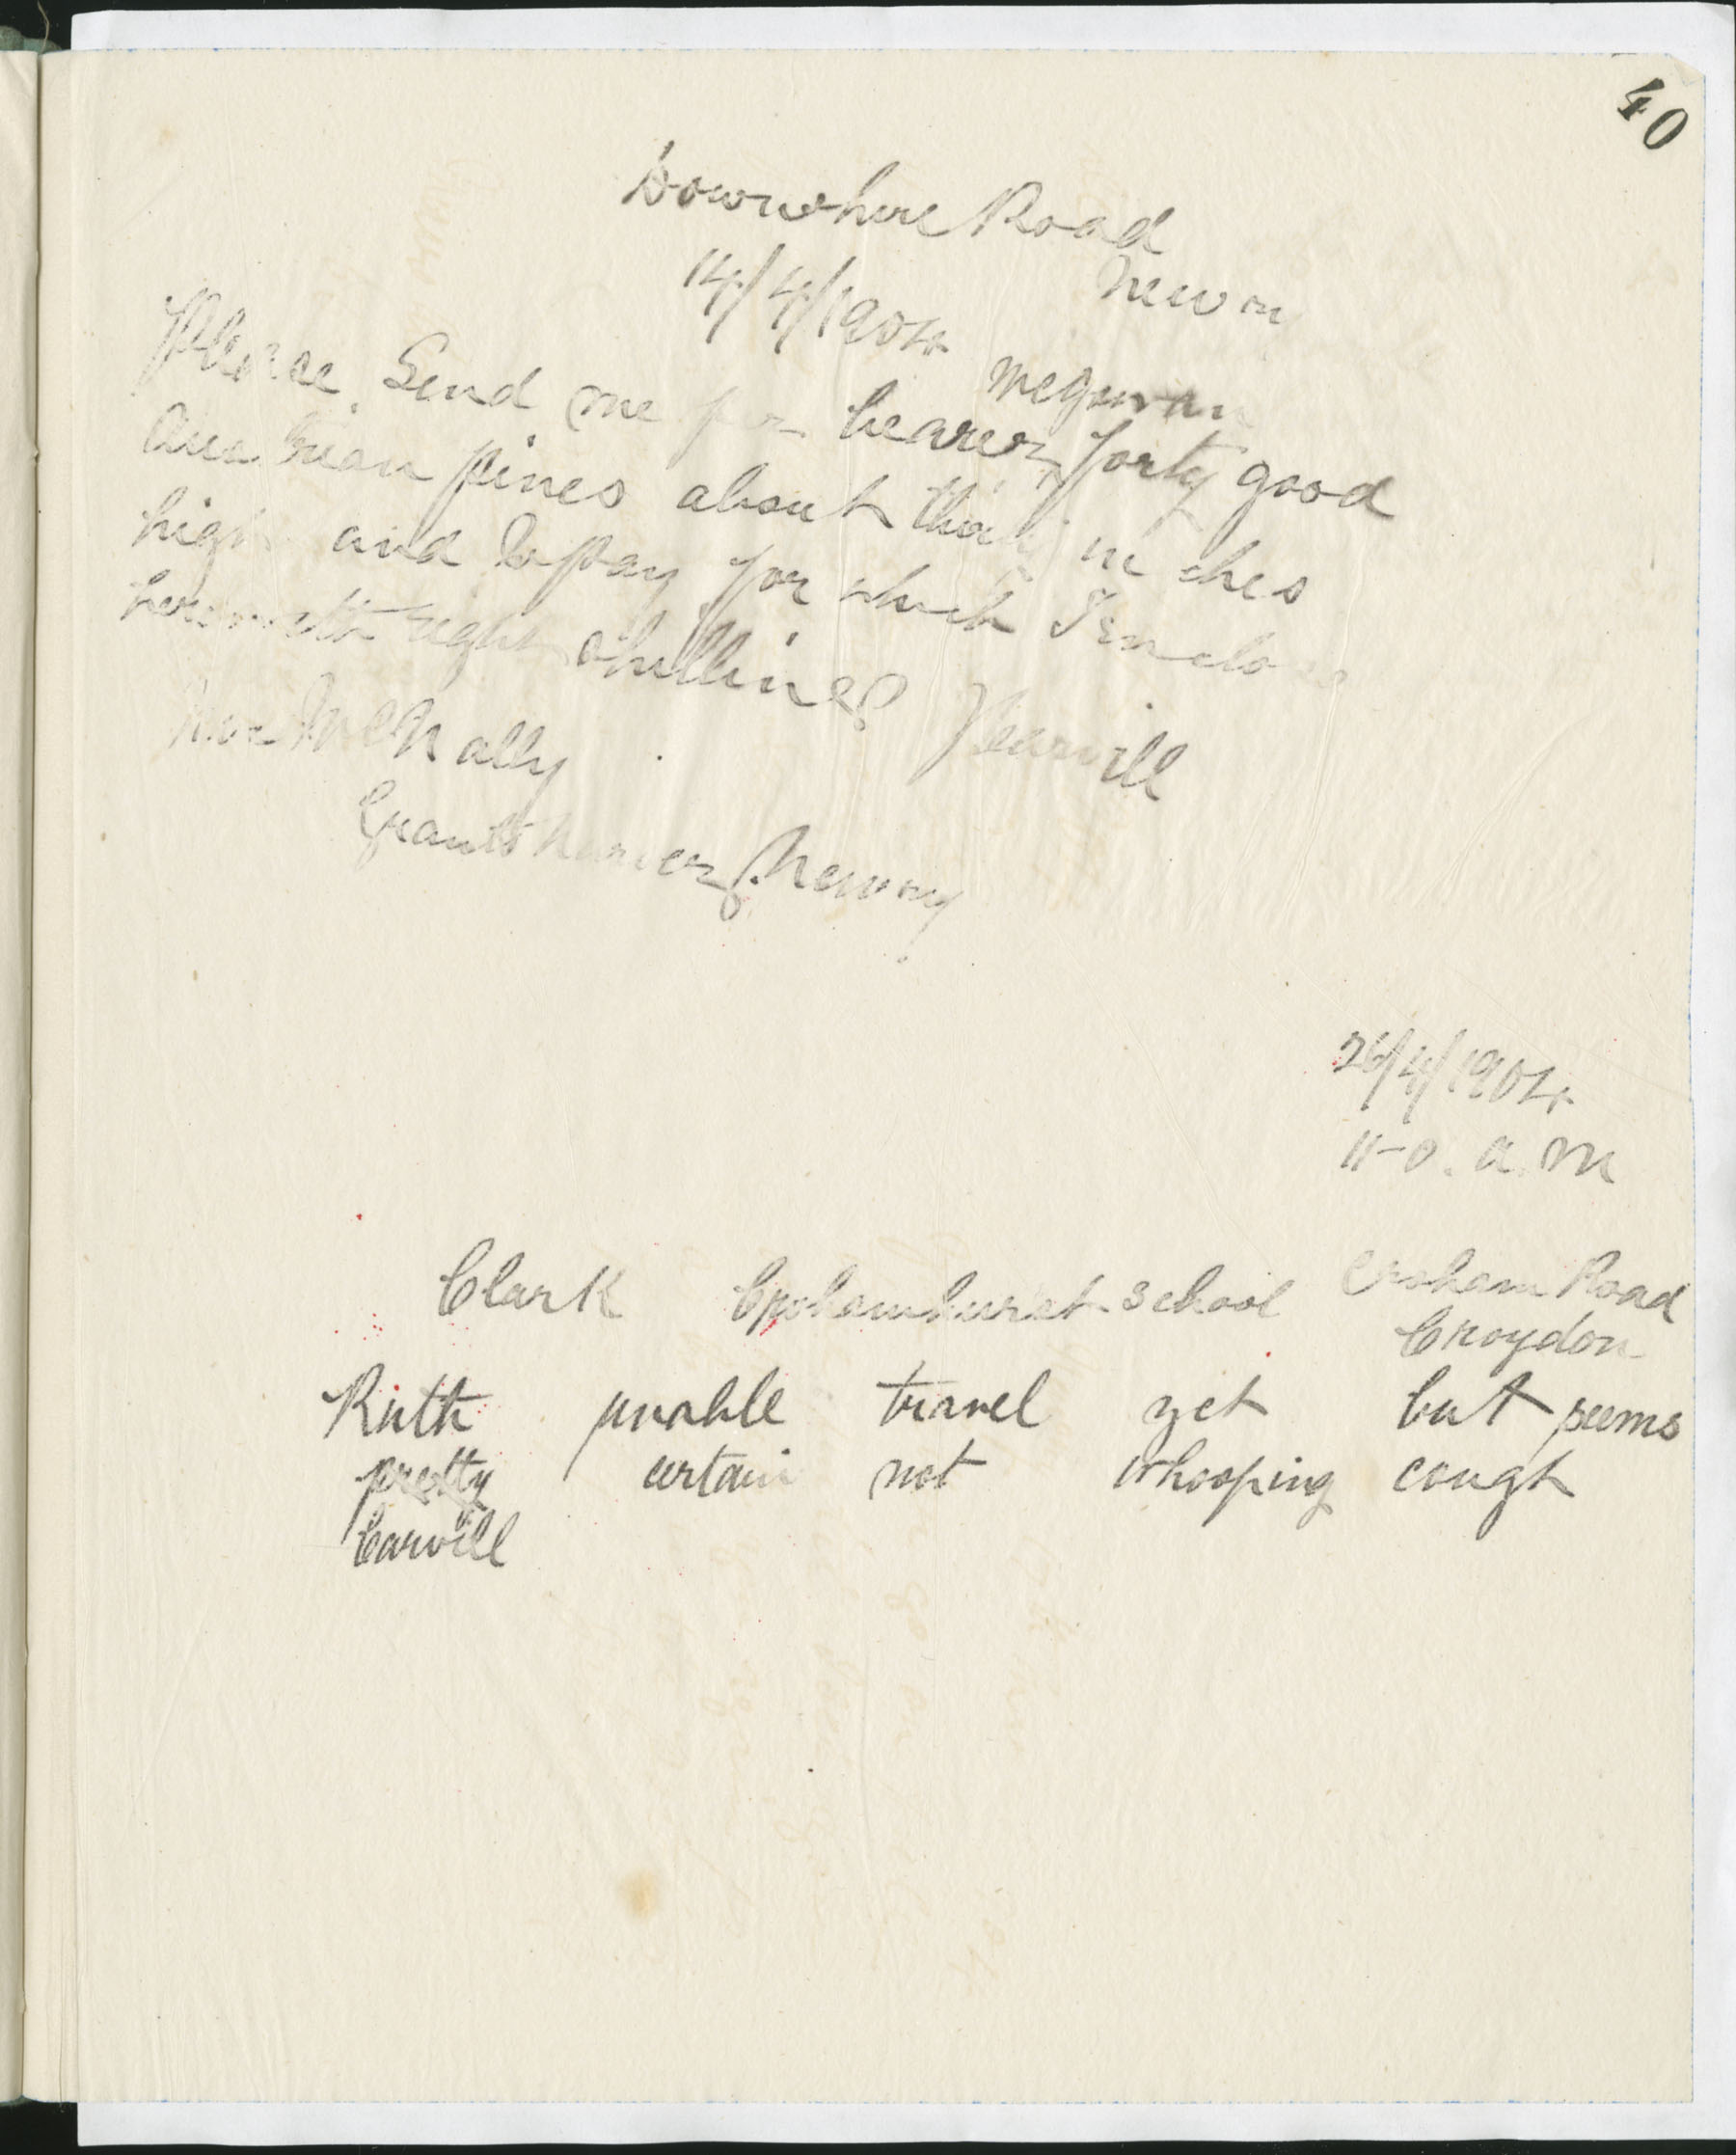 40
Downshire Road
Newry
14/4/1904
Please Send me per bearer forty good
Austrian pines about thirty inches
high and bushy for which I enclose
herewith eight shillings
Carvill
McNally
Grants Nursery Newry
26/4/1904
11-0. a.m
Clark Crohamhurst School Croham Road
Croydon
Ruth unable travel yet but seems
pretty certain not whooping cough
Carvill